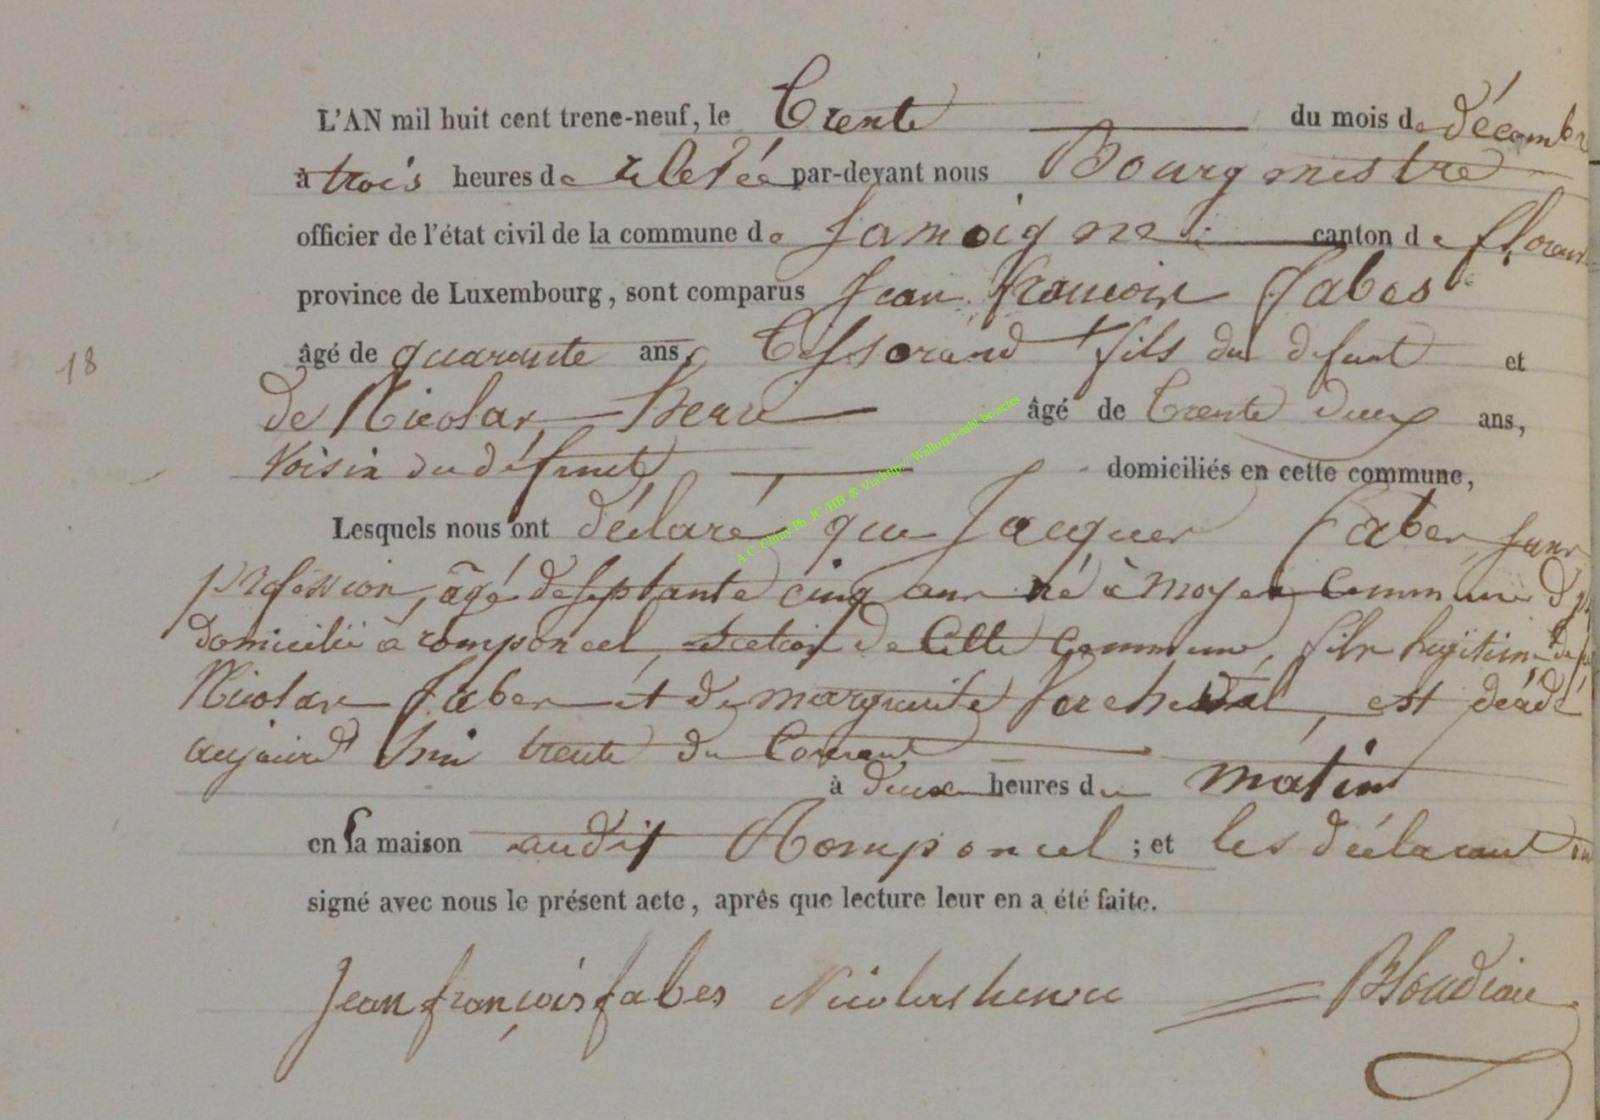 L'AN mil huit cent trene-neuf, le Trente du mois de décembre
à trois heures de relevée par-devant nous Bourgmestre
officier de l'état civil de la commune de Jamoigne canton de
province de Luxembourg, sont comparus Jean françois fabes
âgé de quarante ans, Tisserand fils du defunt et
de Nicolas âgé de trente deux ans,
Voisin du défunt domiciliés en cette commune,
18
Lesquels nous ont déclaré que Jacques faber sans
profession, âgé de septante cinq ans né à moyen Commune
domicilié à romponcel, section de Cette Commune, fils légitime
Nicolas faber et de marguerite est décédé
aujourd'hui trente du Courant
à deux heures du matin
en sa maison audit Romponcel ; et les déclarant
signé avec nous le présent acte, après que lecture leur en a été faite.
Jean françois fabes Nicolas